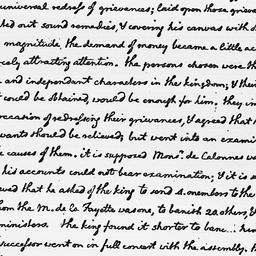 universal redress of grievances; laid open those grieva
ted out sound remedies, & covering his canvas with o
magnitude, the demand of money became a little ac
cely attracting attention. the persons chosen were th
and independant characters in the kingdom; & thei
t could be obtained, would be enough for him. they in
occasion of redressing their grievances, & agreed that n
wants should be relieved; but went into an exami
e causes of them. it is supposed Monsr. de Calonnes wa
his accounts could not bear examination; & it is s
eved that he asked of the king to send 4. members to the
hom the M. de la Fayette was one, to banish 20 others, &
ministers. the king found it shorter to ban
successor went on in full concert with the assembly. th